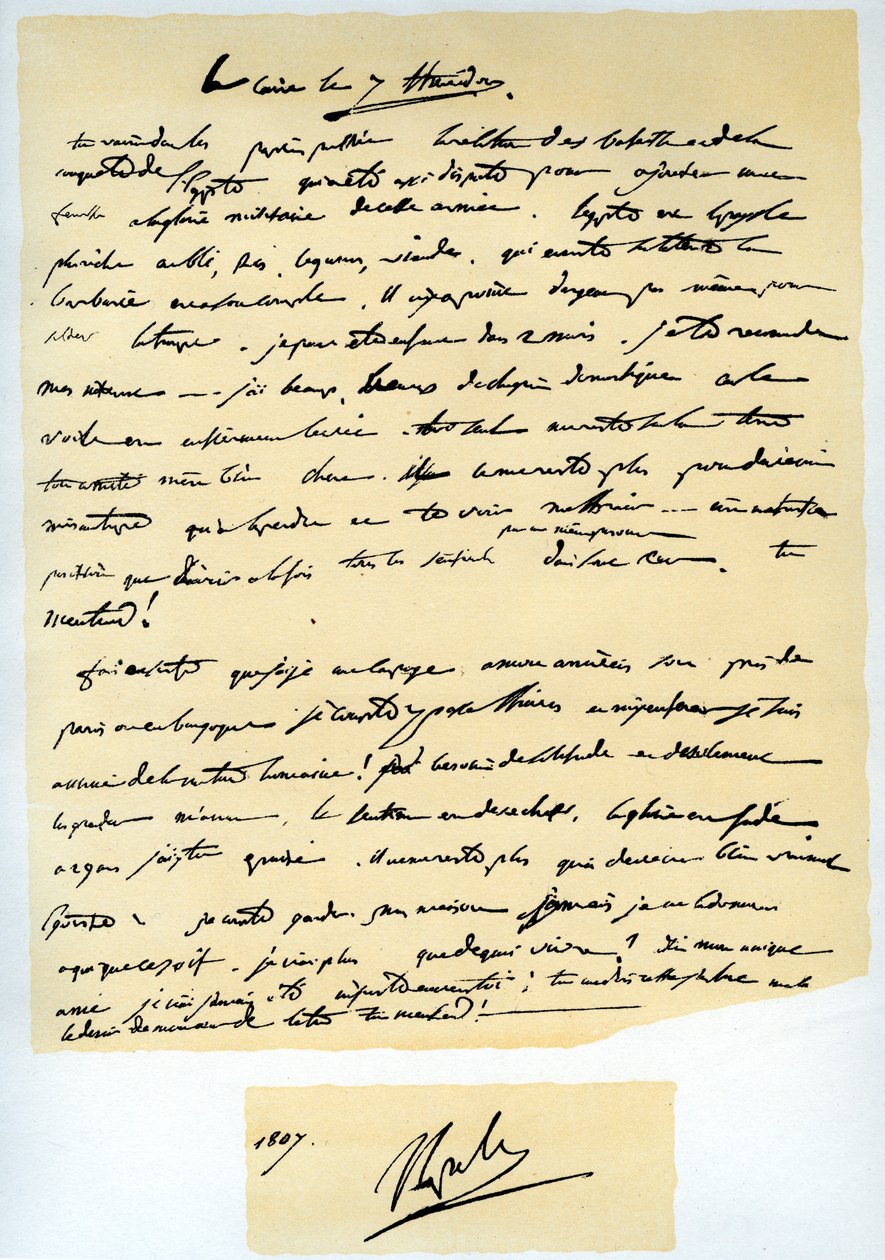 le Caire le 7 Thermidor.
tu verras dans les papiers publics la relation des batailles et de la
conquete de l'Egypte qui a été assé disputé pour ajouter une
feuille a la gloire militaire de cette armée. l'egypte est le pays le
plus riche en blé, ris, legumes, viandes, qui existe sur la terre la
barbarie est a son comble. il n'y a point d'argent pas même pour
solder la troupe. je peux etre en france dans 2 mois. je te recomande
mes interets — j'ai beaucoup, beaucoup de chagrin domestique car le
voile est entierement levé toi seul me reste sur la terre
ton amitié m'est bien chere. il ne me reste plus pour devenir
misantrope qu'a la perdre et te voir me trahir — c'est une triste
position que d'avoir a la fois tous les sentiments pour une même personne dans un seul cœur. tu
m'entend!
fais en sorte que j'aye une campagne a mon arrivée soit près de
paris ou en bourgogne je compte y passer l'hiver et m'y enfermer je suis
annuié de la nature humaine! j'ai besoin de solitude et d'isolement
les grandeurs m'annuient, le sentiment est deseché, la gloire est fade
a 29 ans j'ai tout epuisé. il ne me reste plus qu'a devenir bien vraiment
egoiste je compte garder ma maison jamais je ne la donnerai
a qui que ce soit. je n'ai plus que de quoi vivre! adieu mon unique
ami je n'ai jamais été injuste envers toi! tu me dois cette justice malgré
le desir de mon cœur de l'etre tu m'entend!
1807.